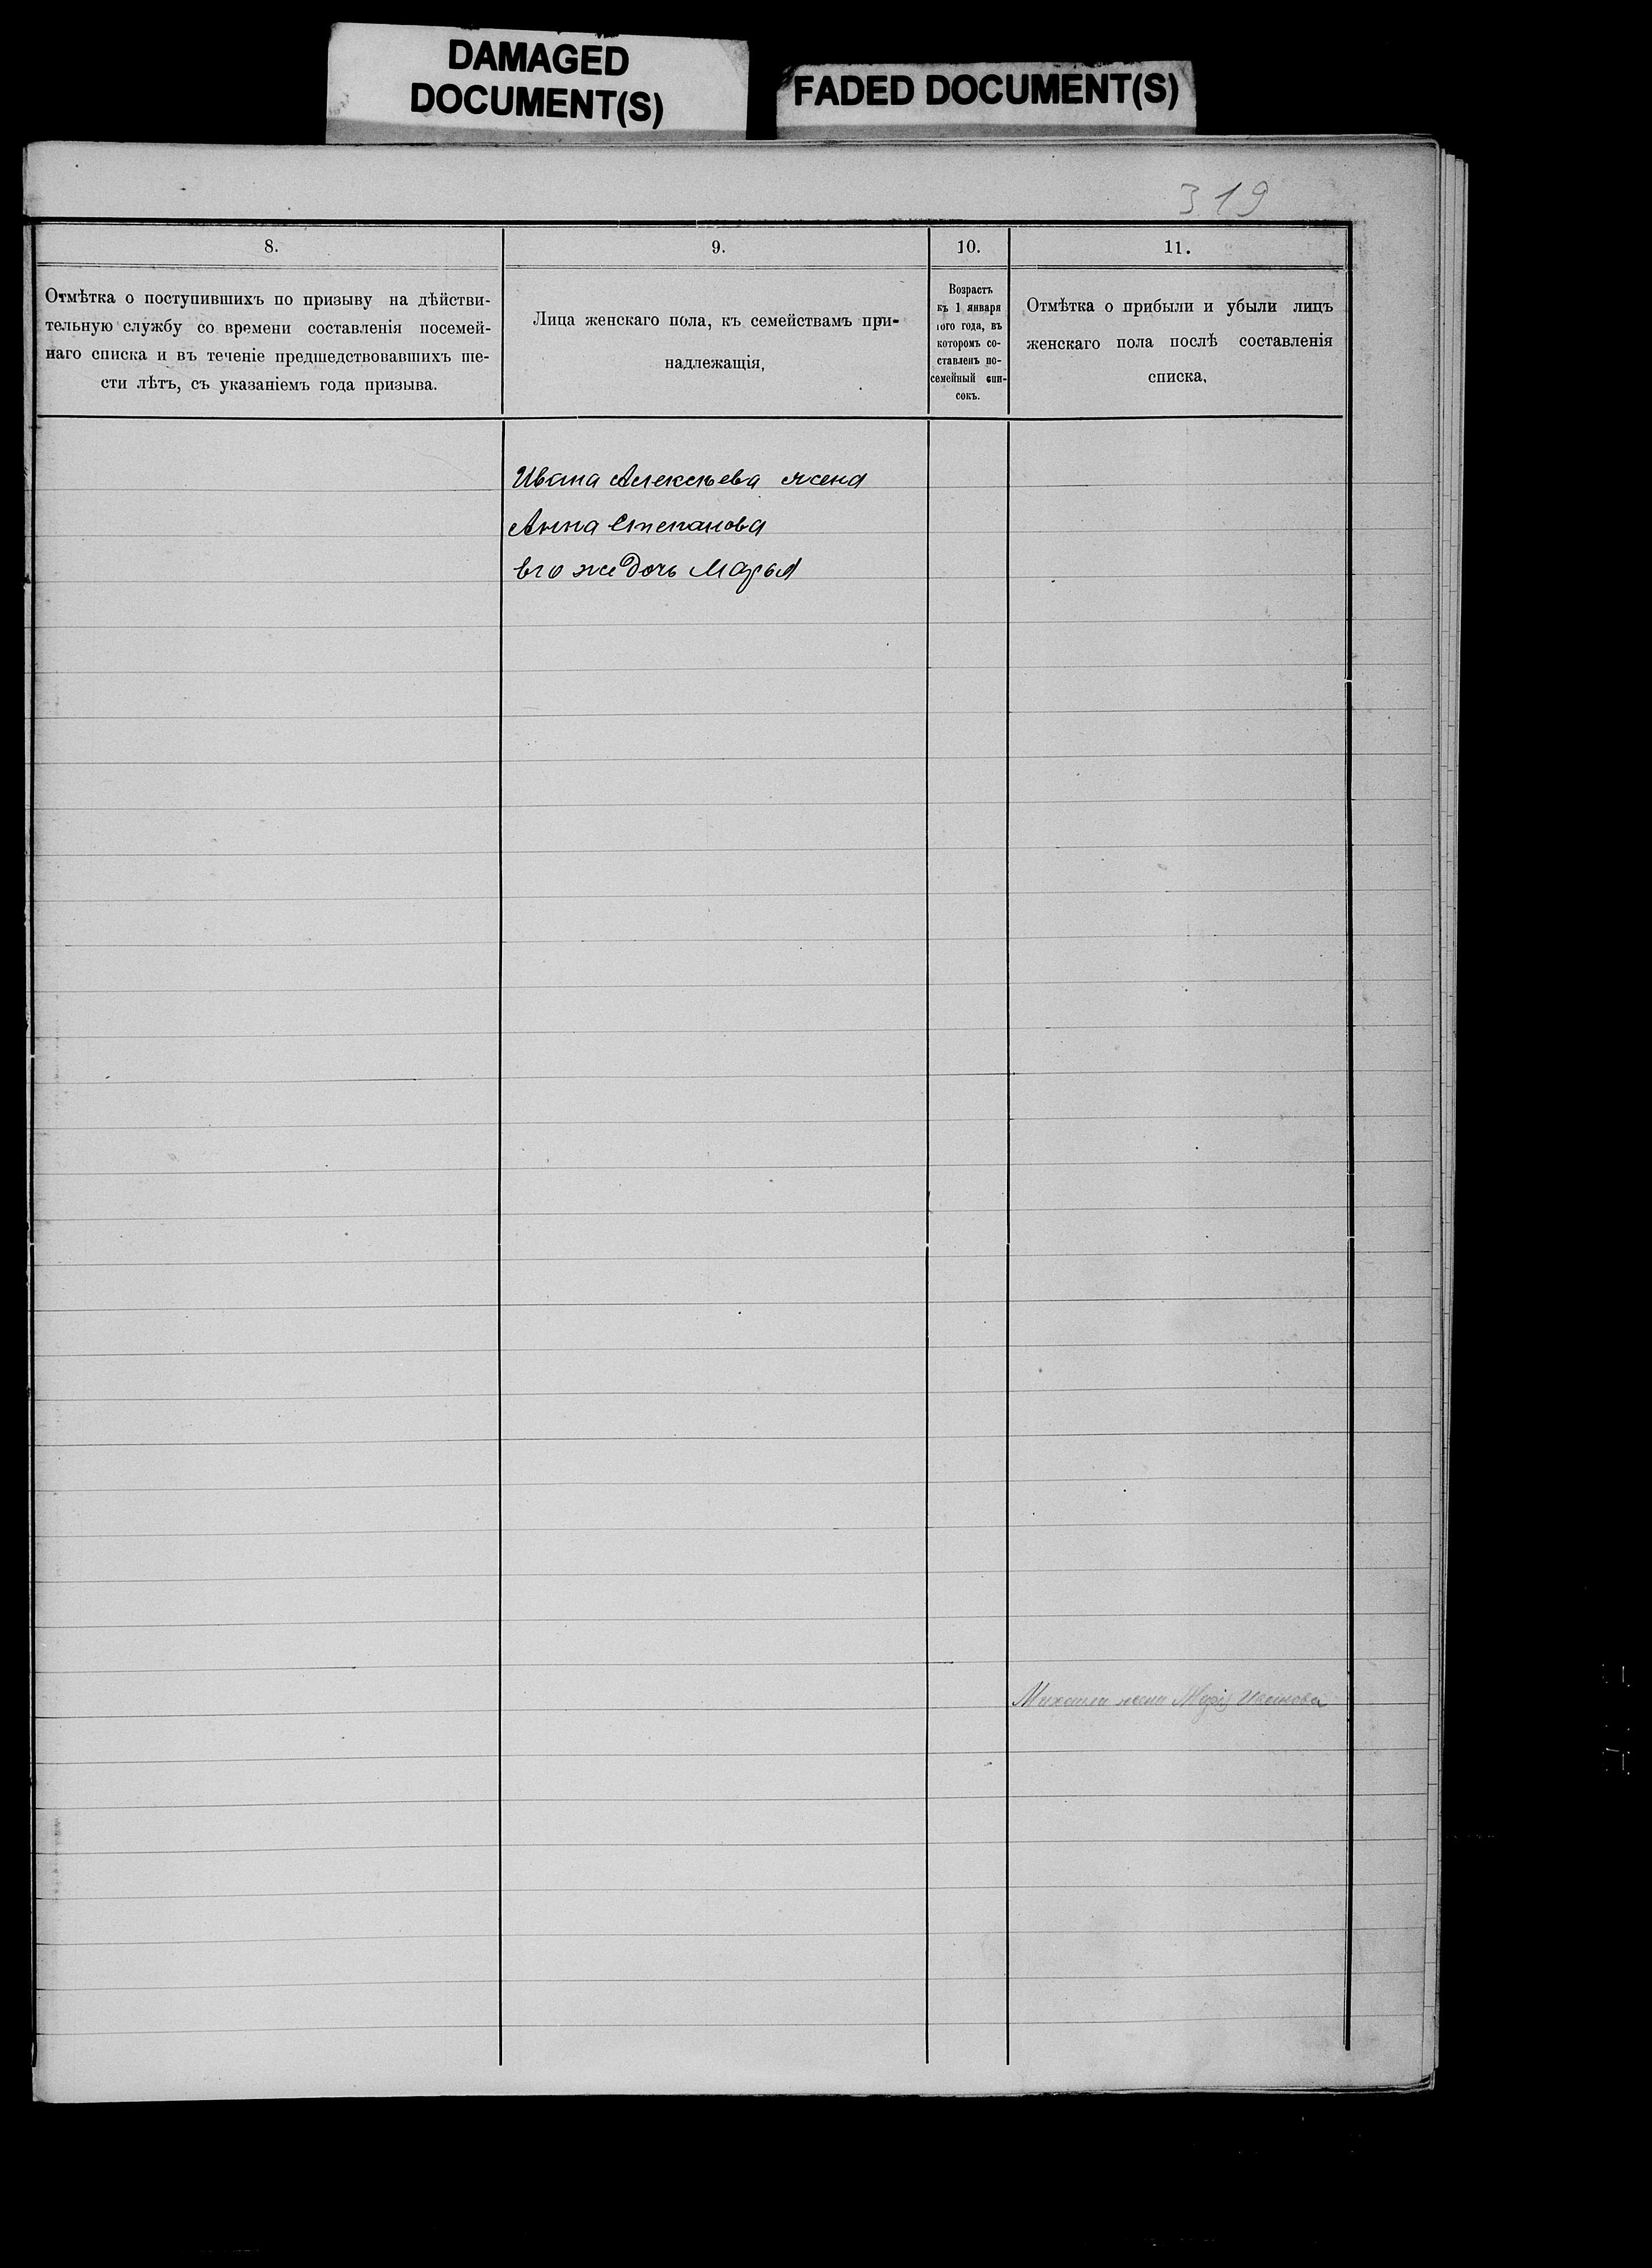 DAMAGED
DOCUMENT(S)
FADED DOCUMENT(S)
319
8.
Отмѣтка о поступившихъ по призыву на дѣйстви-
тельную службу со времени составленія посемей-
наго списка и въ теченіе предшедствовавшихъ ше-
сти лѣтъ, съ указаніемъ года призыва.
9.
Лица женскаго пола, къ семействамъ при-
надлежащія,
10.
Возрастъ
къ 1 января
того года, въ
которомъ со-
ставленъ по-
семейный спи-
сокъ.
11.
Отмѣтка о прибыли и убыли лицъ
женскаго пола послѣ составленія
списка,
Ивана Алексѣева жена
Анна Степанова
его же дочь Марья
Михаила жена Марія Иванова